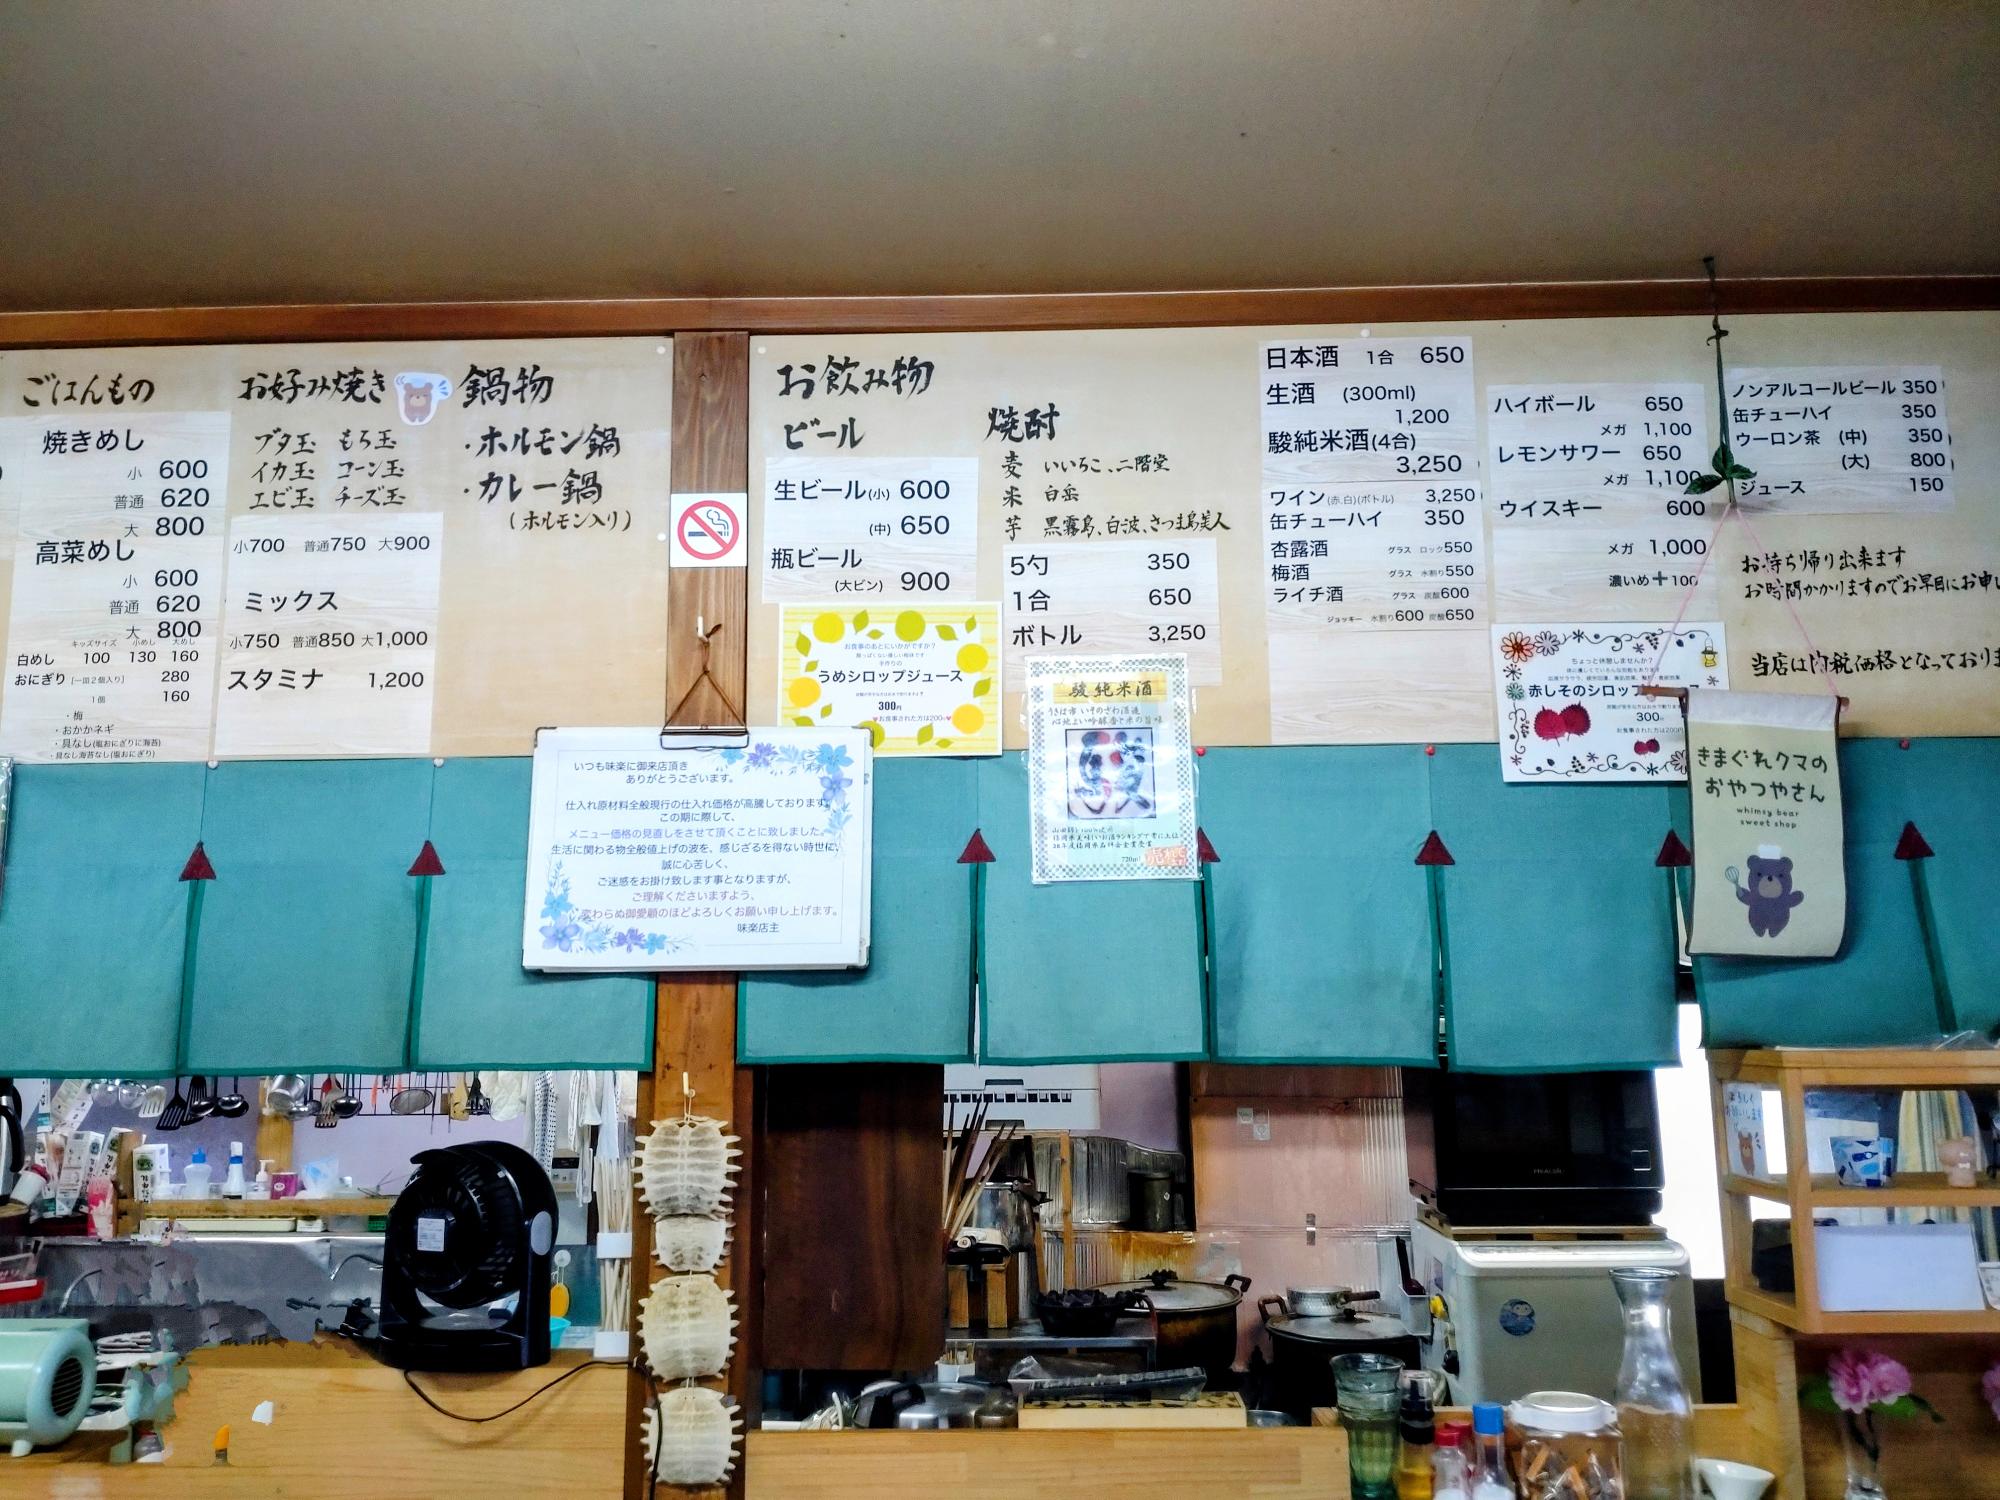 ごはんもの
焼きめし
小 600
普通 620
大 800
高菜めし
小 600
普通 620
大 800
キッズサイズ 小めし 大めし
白めし 100 130 160
おにぎり [一皿2個入り] 280
1個 160
・梅
・おかかネギ
・具なし(塩おにぎりに海苔)
・具なし海苔なし(塩おにぎり)
お好み焼き
ブタ玉 もち玉
イカ玉 コーン玉
エビ玉 チーズ玉
小700 普通750 大900
ミックス
小750 普通850 大1,000
スタミナ 1,200
鍋物
・ホルモン鍋
・カレー鍋
(ホルモン入り)
いつも味楽に御来店頂き
ありがとうございます。
仕入れ原材料全般現行の仕入れ価格が高騰しております。
この期に際して、
メニュー価格の見直しをさせて頂くことに致しました。
生活に関わる物全般値上げの波を、感じざるを得ない時世に、
誠に心苦しく、
ご迷惑をお掛け致します事となりますが、
ご理解くださいますよう、
変わらぬ御愛顧のほどよろしくお願い申し上げます。
味楽店主
お飲み物
ビール
生ビール(小) 600
(中) 650
瓶ビール
(大ビン) 900
お食事のあとにいかがですか?
手作りの
うめシロップジュース
300円
お食事された方は200円
焼酎
麦 いいちこ、二階堂
米 白岳
芋 黒霧島、白波、さつま島美人
5勺 350
1合 650
ボトル 3,250
駿純米酒
うきは市 いそのさわ酒造
心地よい吟醸香と米の旨味
720ml
日本酒 1合 650
生酒 (300ml)
1,200
駿純米酒(4合)
3,250
ワイン(赤,白)(ボトル) 3,250
缶チューハイ 350
杏露酒 グラス ロック550
梅酒 グラス 水割り550
ライチ酒 グラス 炭酸600
ジョッキー 水割り600 炭酸650
ハイボール 650
メガ 1,100
レモンサワー 650
メガ 1,100
ウイスキー 600
メガ 1,000
濃いめ+100
ちょっと休憩しませんか?
赤しそのシロップジュース
300円
お食事された方は200円
ノンアルコールビール 350
缶チューハイ 350
ウーロン茶 (中) 350
(大) 800
ジュース 150
お持ち帰り出来ます
お時間かかりますのでお早目にお申し
当店は内税価格となっておりま
きまぐれクマの
おやつやさん
whimsy bear
sweet shop